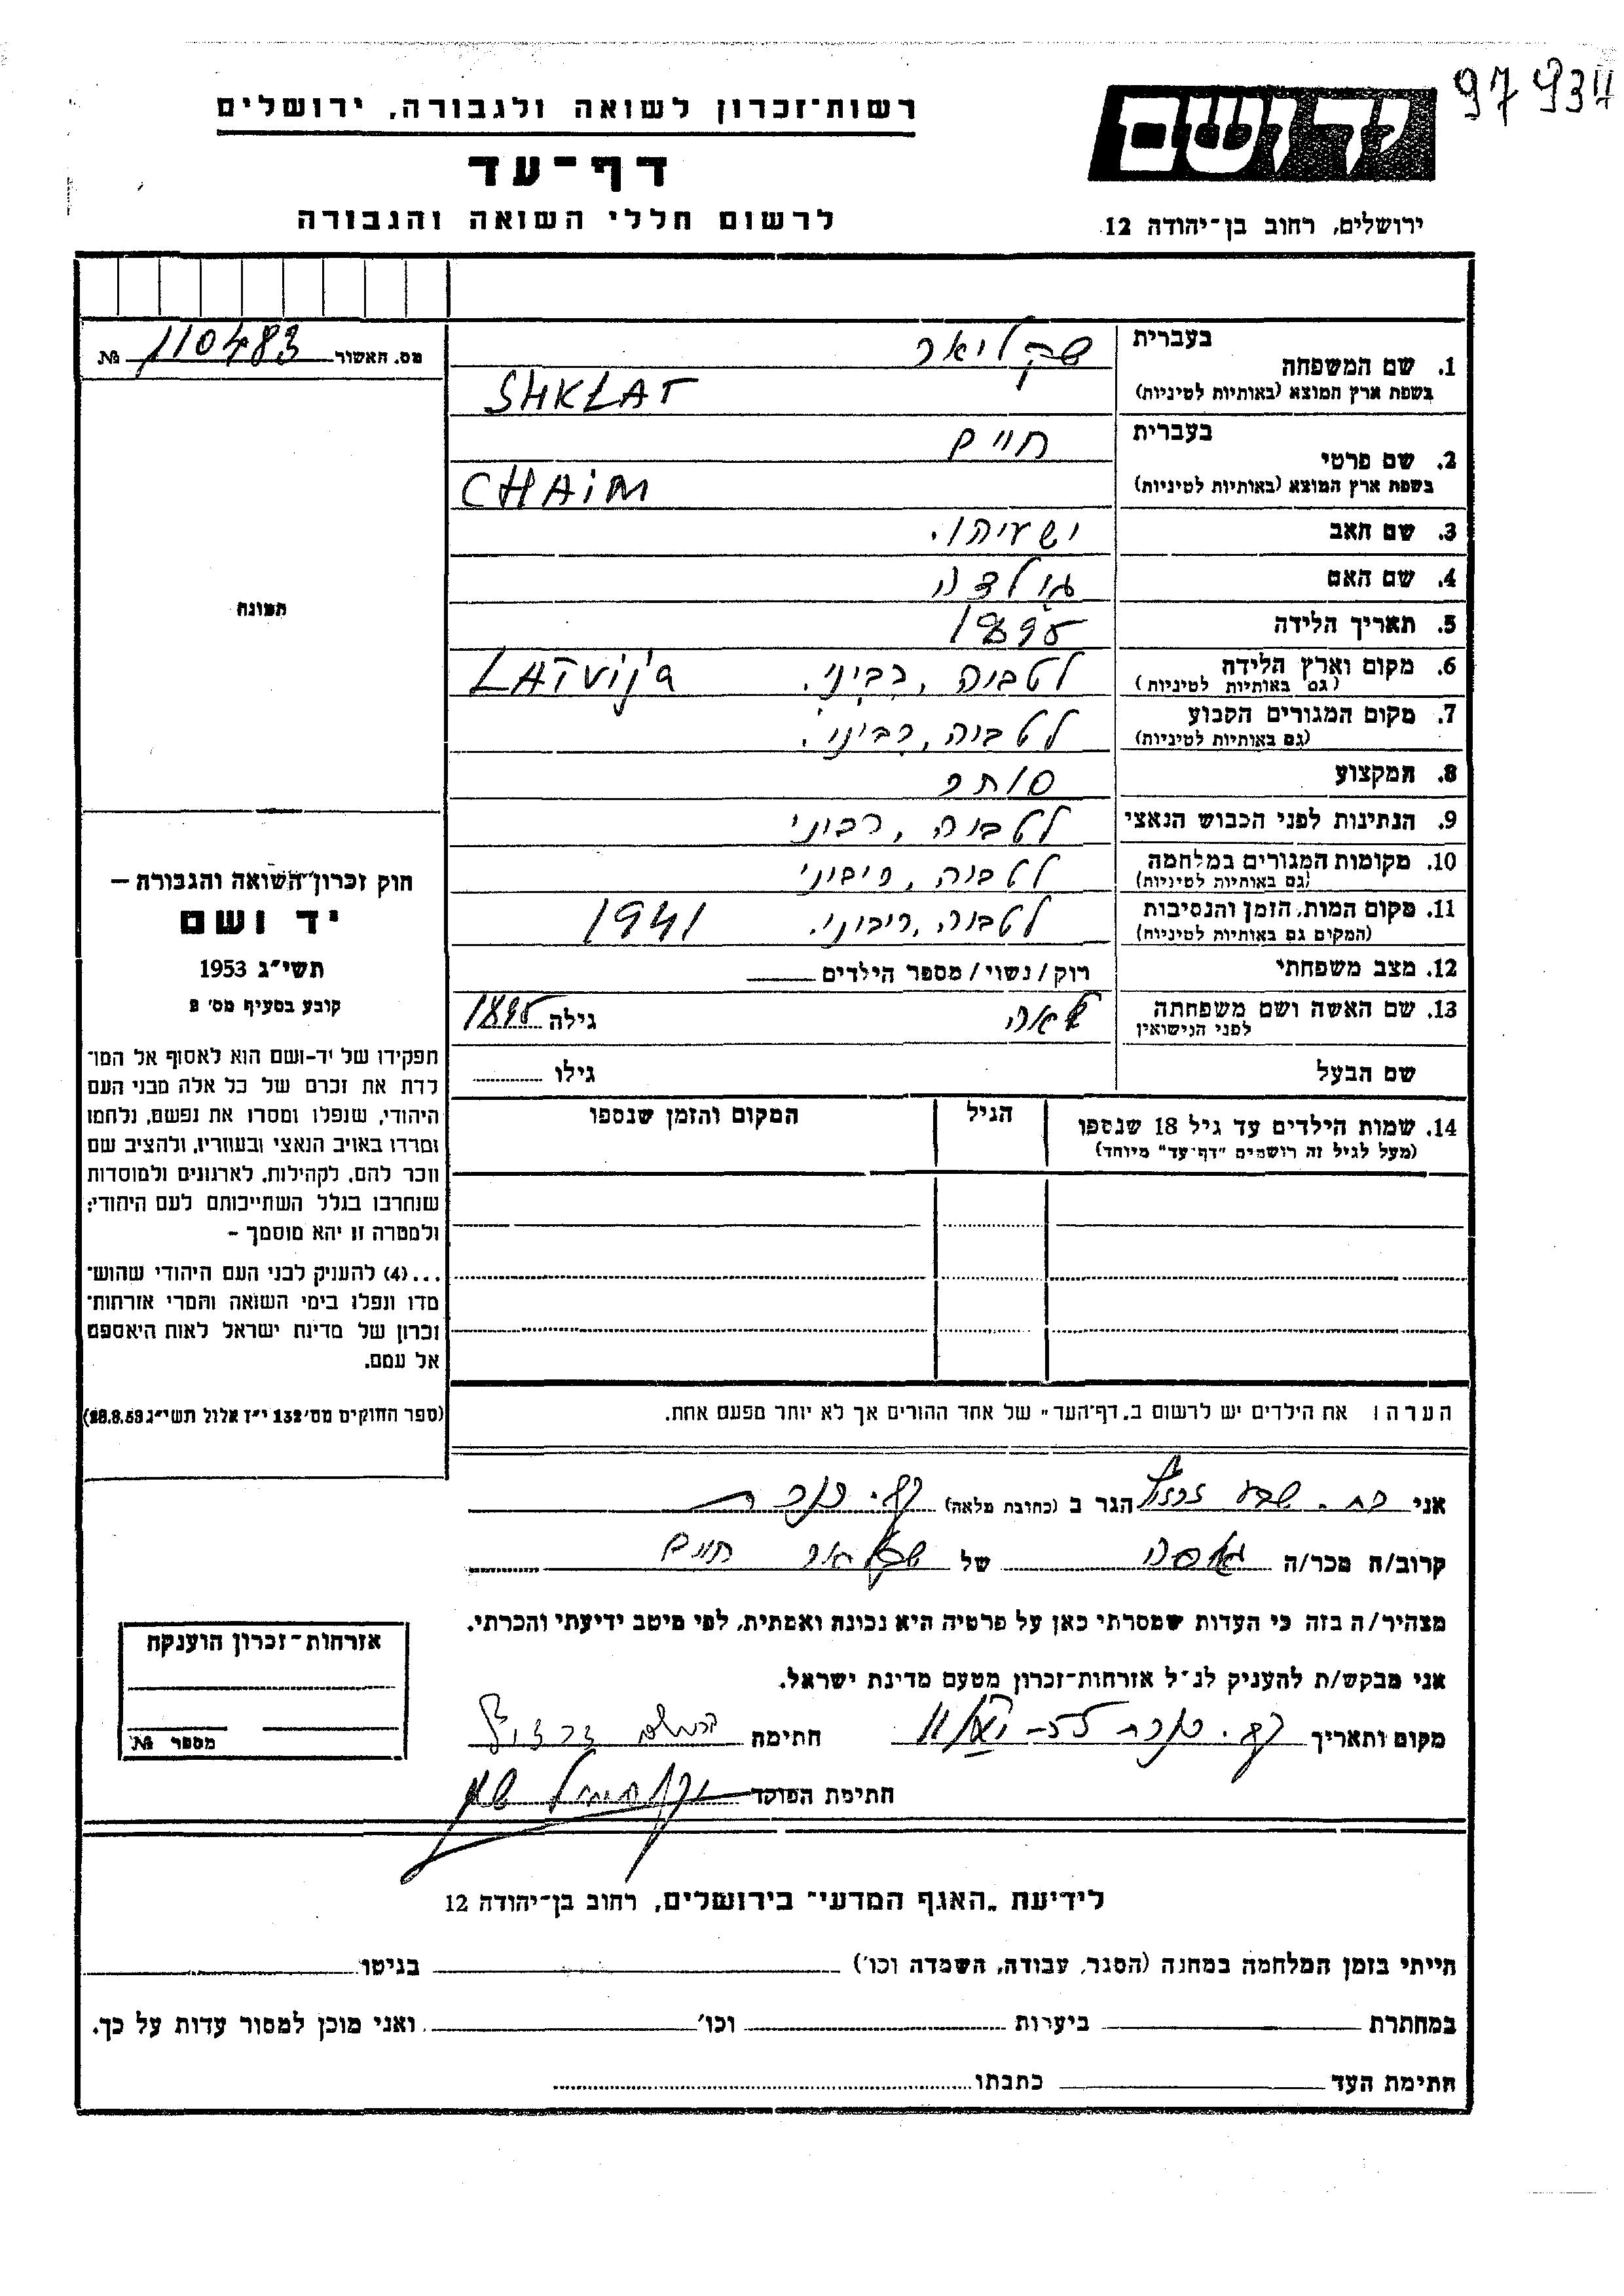 97934
רשות־זכרון לשואה ולגבורה, ירושלים
דף־עד
לרשום חללי השואה והגבורה
יד ושם
ירושלים, רחוב בן־יהודה 12
מס. האשור № 110483
1. שם המשפחה
בעברית
שקליאר
בשפת ארץ המוצא (באותיות לטיניות)
SHKLAT
2. שם פרטי
בעברית
חיים
בשפת ארץ המוצא (באותיות לטיניות)
CHAIM
3. שם האב ישעיהו.
4. שם האם גולדה
5. תאריך הלידה 1895
6. מקום וארץ הלידה לטביה, רביני. LATVIJa
(גם באותיות לטיניות)
7. מקום המגורים הקבוע לטביה, רביני.
(גם באותיות לטיניות)
8. המקצוע סוחר
9. הנתינות לפני הכבוש הנאצי לטביה, רביני
10. מקומות המגורים במלחמה לטביה, ריבני
(גם באותיות לטיניות)
11. מקום המות, הזמן והנסיבות לטביה, ריבני. 1941
(המקום גם באותיות לטיניות)
12. מצב משפחתי רוק/נשוי/מספר הילדים
13. שם האשה ושם משפחתה
לפני הנישואין
גילה 1895
שם הבעל גילו
14. שמות הילדים עד גיל 18 שנספו
(מעל לגיל זה רושמים "דף־עד" מיוחד)
הגיל
המקום והזמן שנספו
הערה: את הילדים יש לרשום ב„דף־העד" של אחד ההורים אך לא יותר מפעם אחת.
התמונה
חוק זכרון השואה והגבורה –
יד ושם
תשי"ג 1953
קובע בסעיף מס' 2
תפקידו של יד-ושם הוא לאסוף אל המו־
לדת את זכרם של כל אלה מבני העם
היהודי, שנפלו ומסרו את נפשם, נלחמו
ומרדו באויב הנאצי ובעוזריו, ולהציב שם
וזכר להם, לקהילות, לארגונים ולמוסדות
שנחרבו בגלל השתייכותם לעם היהודי;
ולמטרה זו יהא מוסמך –
...(4) להעניק לבני העם היהודי שהוש־
מדו ונפלו בימי השואה והמרי אזרחות־
זכרון של מדינת ישראל לאות היאספם
אל עמם.
(ספר החוקים מס' 132 י"ז אלול תשי"ג 28.8.53)
אני בת. שבע הגר ב (כתובת מלאה) קר.
קרוב/ה מכר/ה של שקליאר חיים
מצהיר/ה בזה כי העדות שמסרתי כאן על פרטיה היא נכונה ואמתית, לפי מיטב ידיעתי והכרתי.
אני מבקש/ת להעניק לנ"ל אזרחות־זכרון מטעם מדינת ישראל.
מקום ותאריך חתימה
חתימת הפוקד
אזרחות־זכרון הוענקה
מספר №
לידיעת „האגף המדעי" בירושלים, רחוב בן־יהודה 12
הייתי בזמן המלחמה במחנה (הסגר, עבודה, השמדה וכו') בגיטו
במחתרת ביערות וכו' ואני מוכן למסור עדות על כך.
חתימת העד כתבתו